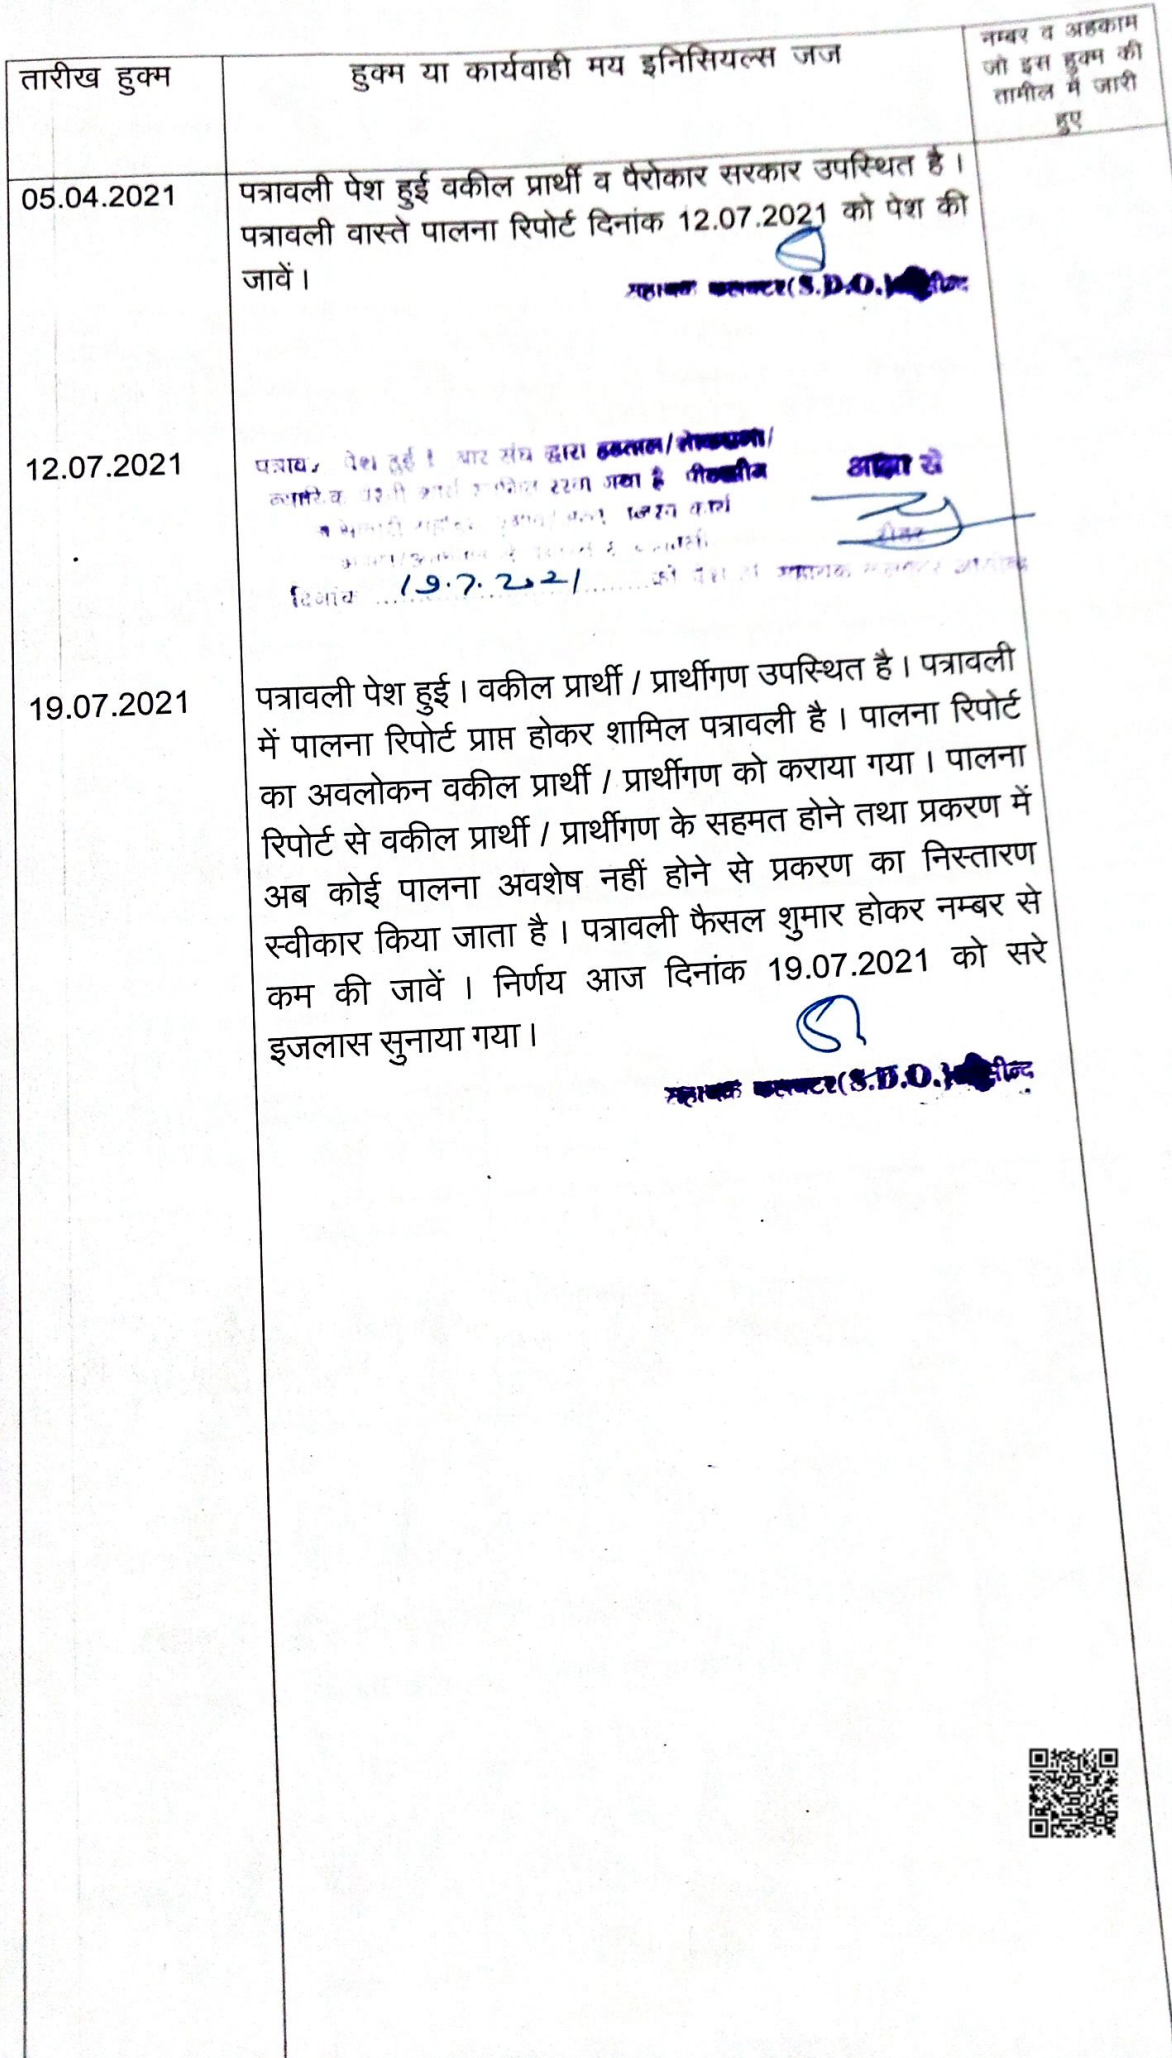 तारीख हुक्म
हुक्म या कार्यवाही मय इनिसियल्स जज
नम्बर व अहकाम
जो इस हुक्म की
तामील में जारी
हुए
05.04.2021
पत्रावली पेश हुई वकील प्रार्थी व पैरोकार सरकार उपस्थित है।
पत्रावली वास्ते पालना रिपोर्ट दिनांक 12.07.2021 को पेश की
जावें।
(S.D.O.)
12.07.2021
पेश हुई। बार संघ द्वारा
गया है
आज्ञा से
रीडर
दिनांक 19.7.2021 को पेश हो
19.07.2021
पत्रावली पेश हुई। वकील प्रार्थी / प्रार्थीगण उपस्थित है। पत्रावली
में पालना रिपोर्ट प्राप्त होकर शामिल पत्रावली है। पालना रिपोर्ट
का अवलोकन वकील प्रार्थी / प्रार्थीगण को कराया गया। पालना
रिपोर्ट से वकील प्रार्थी / प्रार्थीगण के सहमत होने तथा प्रकरण में
अब कोई पालना अवशेष नहीं होने से प्रकरण का निस्तारण
स्वीकार किया जाता है। पत्रावली फैसल शुमार होकर नम्बर से
कम की जावें । निर्णय आज दिनांक 19.07.2021 को सरे
इजलास सुनाया गया।
(S.D.O.)